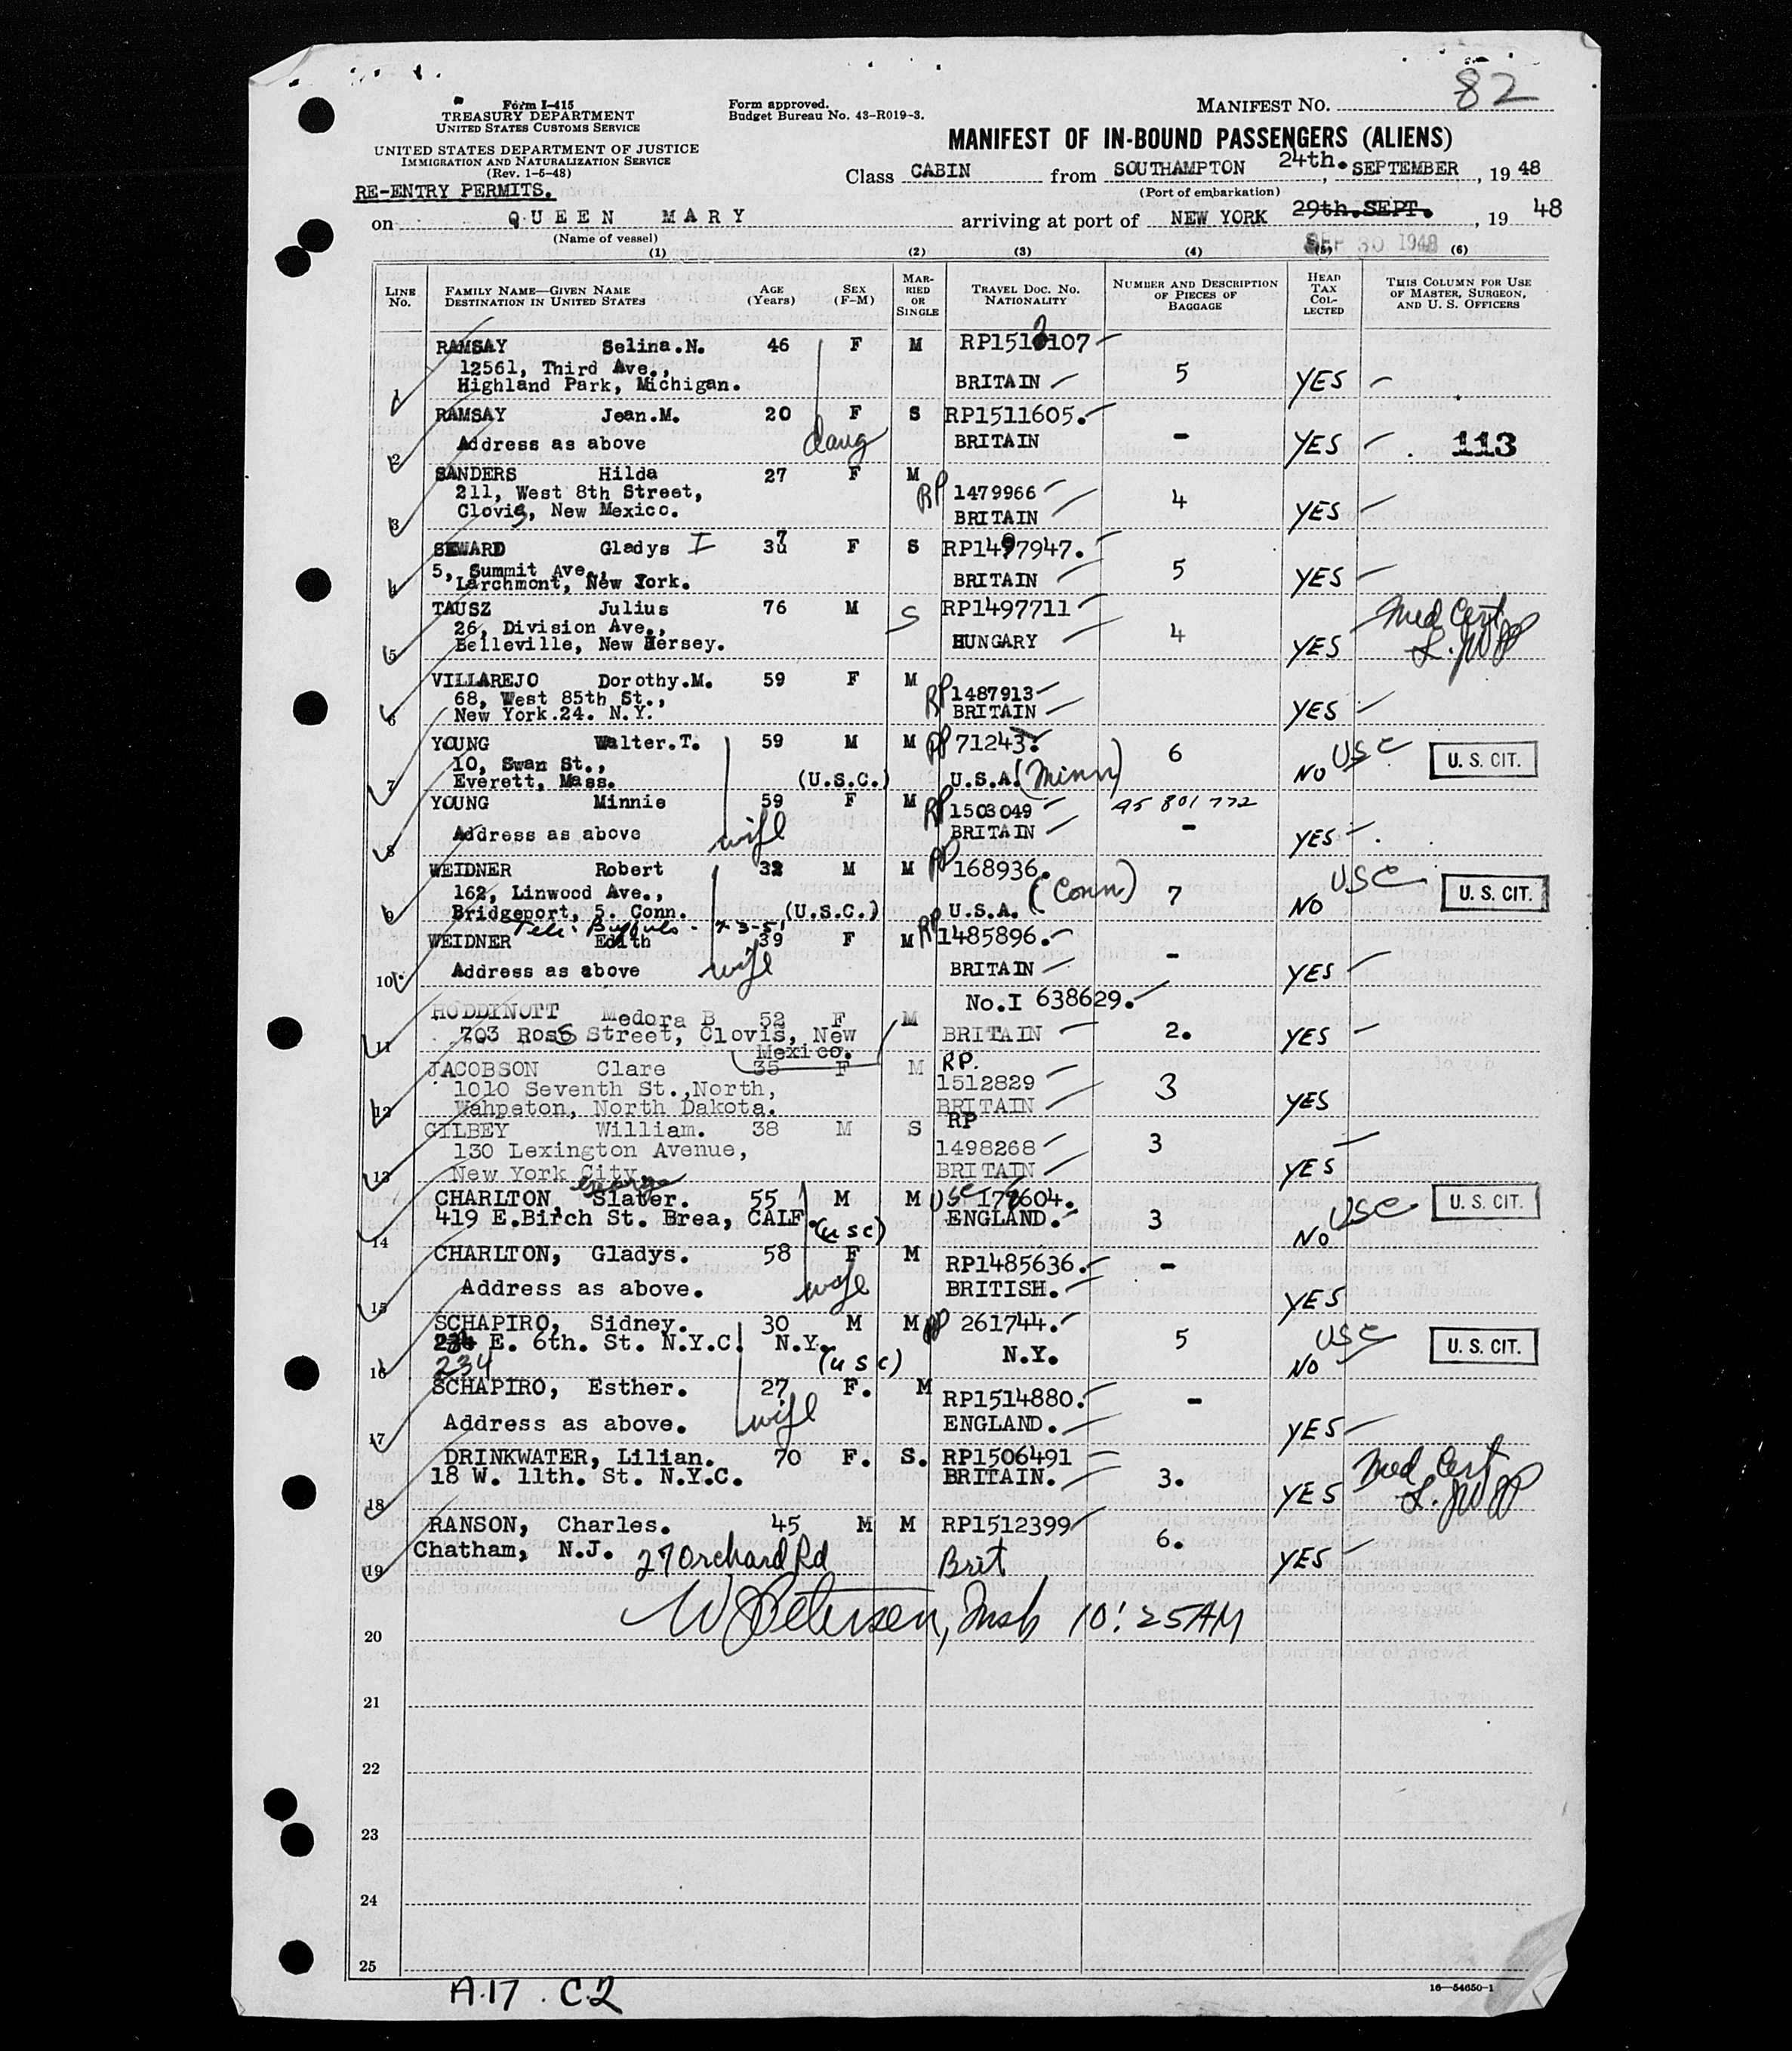 82
Form I-415
TREASURY DEPARTMENT
UNITED STATES CUSTOMS SERVICE
UNITED STATES DEPARTMENT OF JUSTICE
IMMIGRATION AND NATURALIZATION SERVICE
(Rev. 1-5-48)
RE-ENTRY PERMITS.
Form approved.
Budget Bureau No. 43-R019-3.
MANIFEST NO.
MANIFEST OF IN-BOUND PASSENGERS (ALIENS)
Class CABIN from SOUTHAMPTON 24th. SEPTEMBER, 19 48
(Port of embarkation)
on QUEEN MARY arriving at port of NEW YORK 29th.SEPT., 19 48
(Name of vessel)
SEP 30 1948
(1) (2) (3) (4) (5) (6)
LINE No. FAMILY NAME—GIVEN NAME DESTINATION IN UNITED STATES AGE (Years) SEX (F-M) MARRIED OR SINGLE TRAVEL DOC. NO. NATIONALITY NUMBER AND DESCRIPTION OF PIECES OF BAGGAGE HEAD TAX COLLECTED THIS COLUMN FOR USE OF MASTER, SURGEON, AND U. S. OFFICERS
RAMSAY Selina.N. 46 F M RP1512107
12561, Third Ave.,
1 Highland Park, Michigan. BRITAIN 5 YES
RAMSAY Jean.M. 20 F S RP1511605.
2 Address as above daug BRITAIN - YES 113
SANDERS Hilda 27 F M RP 1479966
211, West 8th Street,
3 Clovis, New Mexico. BRITAIN 4 YES
SEWARD Gladys I 37 F S RP1497947.
5, Summit Ave.,
4 Larchmont, New York. BRITAIN 5 YES
TAUSZ Julius 76 M S RP1497711
26, Division Ave.,
5 Belleville, New Jersey. HUNGARY 4 YES Med Cert
VILLAREJO Dorothy.M. 59 F M RP 1487913
68, West 85th St.,
6 New York.24. N.Y. BRITAIN YES
YOUNG Walter.T. 59 M M PP 71243. 6 USC U. S. CIT.
10, Swan St.,
7 Everett, Mass. (U.S.C.) U.S.A. (Minn) NO
YOUNG Minnie 59 F M RP 1503049 A5 801 772
8 Address as above wife BRITAIN - YES
WEIDNER Robert 32 M M PP 168936. USC U. S. CIT.
162, Linwood Ave., (Conn)
9 Bridgeport, 5. Conn. (U.S.C.) U.S.A. 7 NO
WEIDNER Edith 39 F M RP 1485896.
10 Address as above wife BRITAIN - YES
HODDINOTT Medora B 52 F M No.I 638629.
11 703 Ross Street, Clovis, New Mexico. BRITAIN 2. YES
JACOBSON Clare 35 F M RP.
1010 Seventh St.,North, 1512829 3
12 Wahpeton, North Dakota. BRITAIN YES
GILBEY William. 38 M S RP
130 Lexington Avenue, 1498268 3
13 New York City. BRITAIN YES
George
CHARLTON, Slater. 55 M M USC 178604. USC U. S. CIT.
14 419 E.Birch St. Brea, CALF. (USC) ENGLAND. 3 NO
CHARLTON, Gladys. 58 F M RP1485636. -
15 Address as above. wife BRITISH. YES
SCHAPIRO, Sidney. 30 M M PP 261744. 5 USC U. S. CIT.
16 234 E. 6th. St. N.Y.C. N.Y. (USC) N.Y. NO
234
SCHAPIRO, Esther. 27 F. M RP1514880. -
17 Address as above. wife ENGLAND. YES
DRINKWATER, Lilian. 70 F. S. RP1506491 Med Cert
18 18 W. 11th. St. N.Y.C. BRITAIN. 3. YES
RANSON, Charles. 45 M M RP1512399 6.
19 Chatham, N.J. 27 Orchard Rd Brit YES
20 W Petersen, Insp 10:25AM
21
22
23
24
25
A.17 . C.2
16—54650-1